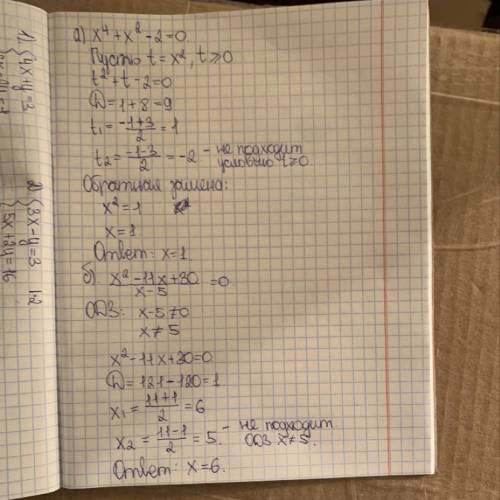 а) x⁴ + x² - 2 = 0
Пусть t = x², t ≥ 0
t² + t - 2 = 0
D = 1 + 8 = 9
t₁ = (-1+3)/2 = 1
t₂ = (-1-3)/2 = -2 - не подходит
условию t ≥ 0.
Обратная замена:
x² = 1
x = 1
Ответ: x = 1
б) (x² - 11x + 30)/(x - 5) = 0
ОДЗ: x - 5 ≠ 0
x ≠ 5
x² - 11x + 30 = 0
D = 121 - 120 = 1
x₁ = (11+1)/2 = 6
x₂ = (11-1)/2 = 5. - не подходит
ОДЗ x ≠ 5.
Ответ: x = 6.
1) { 4x + y = 3
2) { 3x - y = 3 |·2
{ 5x + 2y = 16